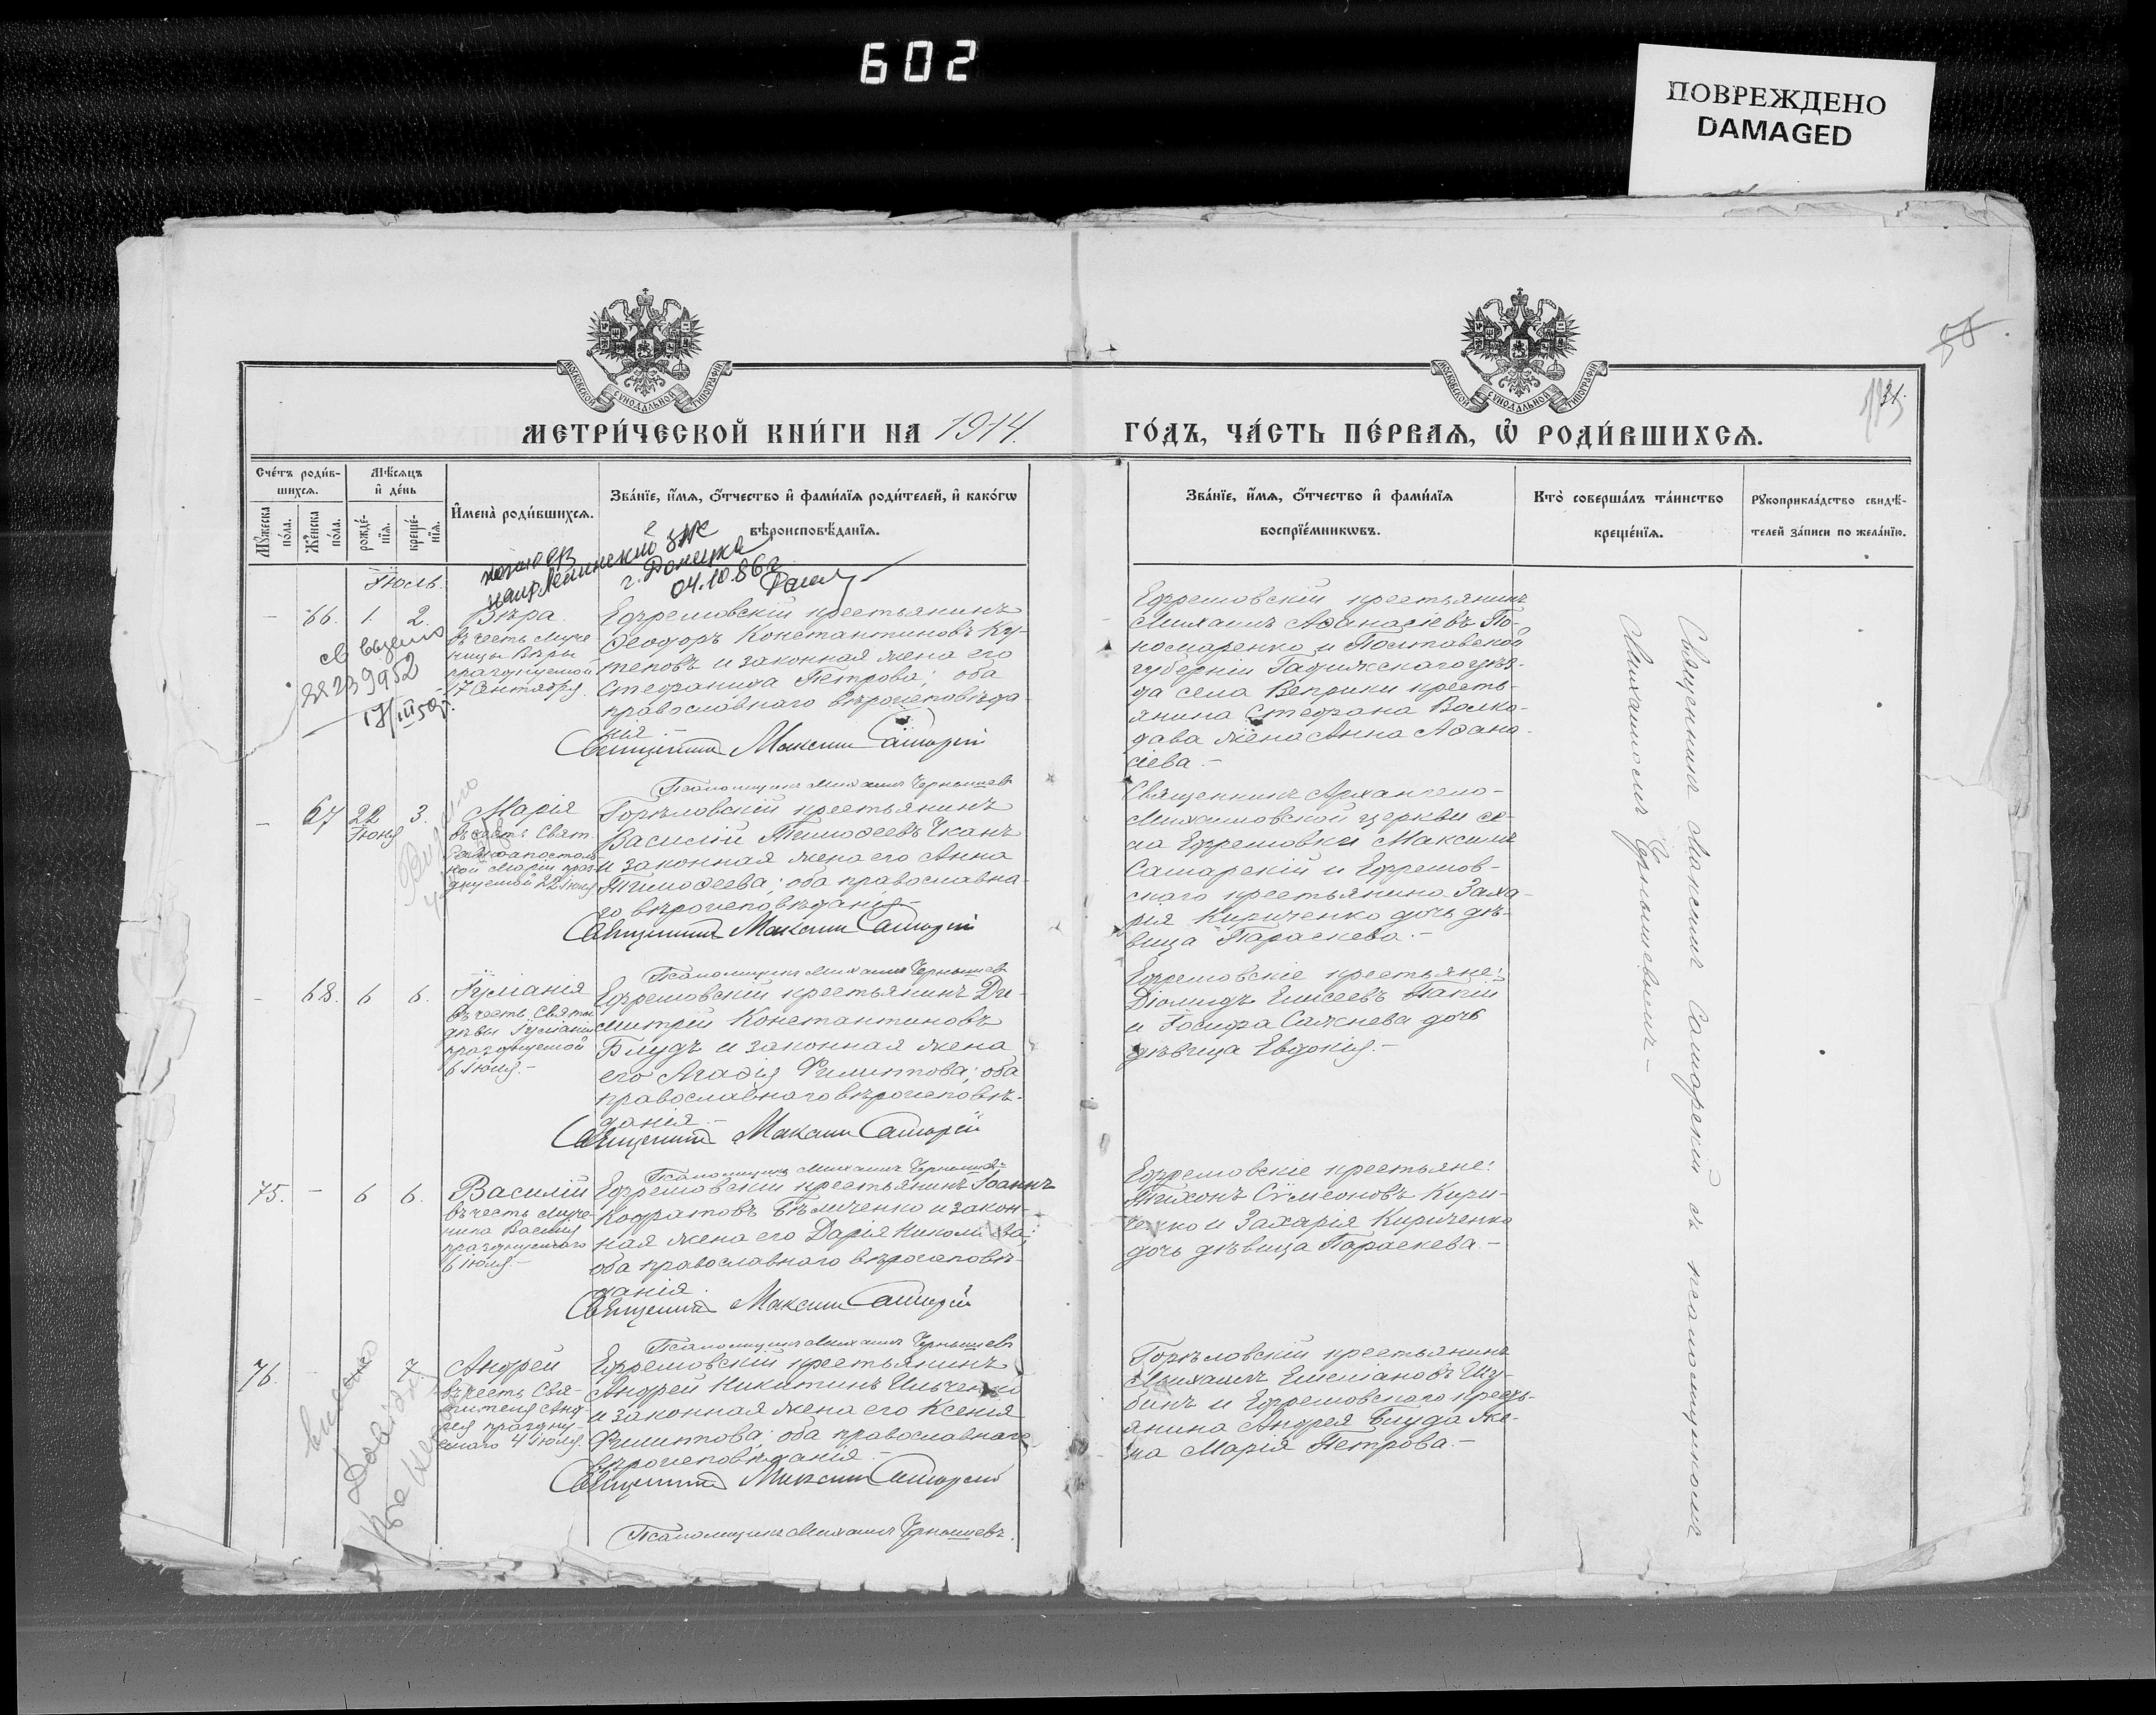 602
ПОВРЕЖДЕНО
DAMAGED
МОСКОВСКОЙ СѴНОДАЛЬНОЙ ТИПОГРАФІИ
МОСКОВСКОЙ СѴНОДАЛЬНОЙ ТИПОГРАФІИ
58
31.
МЕТРИ́ЧЕСКОЙ КНИ́ГИ НА 1914.
ГО́ДЪ, ЧА́СТЬ ПЕ́РВАЯ, Ѡ҆ РОДИ́ВШИХСѦ.
Сче́тъ роди́в-
шихсѧ.
Мꙋ́жеска
по́ла.
Же́нска
по́ла.
Мѣ́сѧцъ
и҆ де́нь
рожде́-
нїѧ.
креще́-
нїѧ.
И҆мена̀ роди́вшихсѧ.
Зва́нїе, и҆́мѧ, ѻ҆́тчество и҆ фами́лїѧ роди́телей, и҆ како́гѡ
вѣроисповѣ́данїѧ.
Зва́нїе, и҆́мѧ, ѻ҆́тчество и҆ фами́лїѧ
воспрїе́мникѡвъ.
Кто̀ соверша́лъ та́инство
креще́нїѧ.
Рꙋкоприкла́дство свидѣ́-
телей за́писи по жела́нїю.
Ленинский
г. Донецка
04.10.86г
Іюль.
— 66. 1. 2.
Вѣра.
въ честь муче
ницы Вѣры
празднуемой
17 Сентября.
Ефремовскій крестьянинъ
Ѳеодоръ Константиновъ Ку-
теповъ и законная жена его
Стефанида Петрова; оба
православнаго вѣроисповѣда-
нія.—
Священникъ Максим Самарскій
Псаломщикъ Михаилъ Чернышевъ
Ефремовскій крестьянинъ
Михаилъ Аѳанасіевъ По-
номаренко и Полтавской
губерніи Гадяжскаго уѣз-
да села Веприки кресть-
янина Стефана Волко-
дава жена Анна Аѳана-
сіева.—
св выдано
17/III 59г.
— 67 22 3.
Іюня
Марія
въ честь Свят.
Равноапостоль
ной Маріи праз-
днуемой 22 Іюля
Горѣловскій крестьянинъ
Василій Тимоѳеевъ Чканъ
и законная жена его Анна
Тимоѳеева; оба православна-
го вѣроисповѣданія—
Священникъ Максим Самарскій
Псаломщикъ Михаилъ Чернышевъ
Священникъ Архангело-
Михаиловской церкви се-
ла Ефремовки Максимъ
Самарскій и Ефремов-
скаго крестьянина Заха-
рія Кириченко дочь дѣ-
вица Параскева.—
— 68. 6 6.
Іуліанія
въ честь Святой
дѣвы Іуліаніи
празднуемой
6 Іюля.—
Ефремовскій крестьянинъ Ди-
митрій Константиновъ
Блудъ и законная жена
его Агаѳія Филиппова; оба
православнаго вѣроисповѣ-
данія.—
Священникъ Максим Самарскій
Псаломщикъ Михаилъ Чернышевъ
Ефремовскіе крестьяне:
Діомидъ Елисеевъ Папій
и Іосифа Сажнева дочь
дѣвица Евдокія.—
75. — 6 6.
Василій
въ честь муче-
ника Василія
празднуемаго
6 Іюля—
Ефремовскій крестьянинъ Іоаннъ
Кодратовъ Бѣличенко и закон-
ная жена его Дарія Николаева;
оба православнаго вѣроисповѣ-
данія.
Священникъ Максим Самарскій
Псаломщикъ Михаилъ Чернышевъ
Ефремовскіе крестьяне:
Тихонъ Сѵмеоновъ Кири-
ченко и Захарія Кириченко
дочь дѣвица Параскева.—
76. — 7.
Андрей
въ честь Свя-
тителя Анд-
рея праздну-
емаго 4 Іюля.
Ефремовскій крестьянинъ
Андрей Никитинъ Ильченко
и законная жена его Ксенія
Филиппова; оба православнаго
вѣроисповѣданія—
Священникъ Максим Самарскій
Псаломщикъ Михаилъ Чернышевъ.
Горѣловскій крестьянинъ
Михаилъ Емеліановъ Шу-
бинъ и Ефремовскаго кресть-
янина Андрея Блуда же-
на Марія Петрова.—
Священникъ Максимъ Самарскій съ псаломщикомъ
Михаиломъ Чернышевымъ—